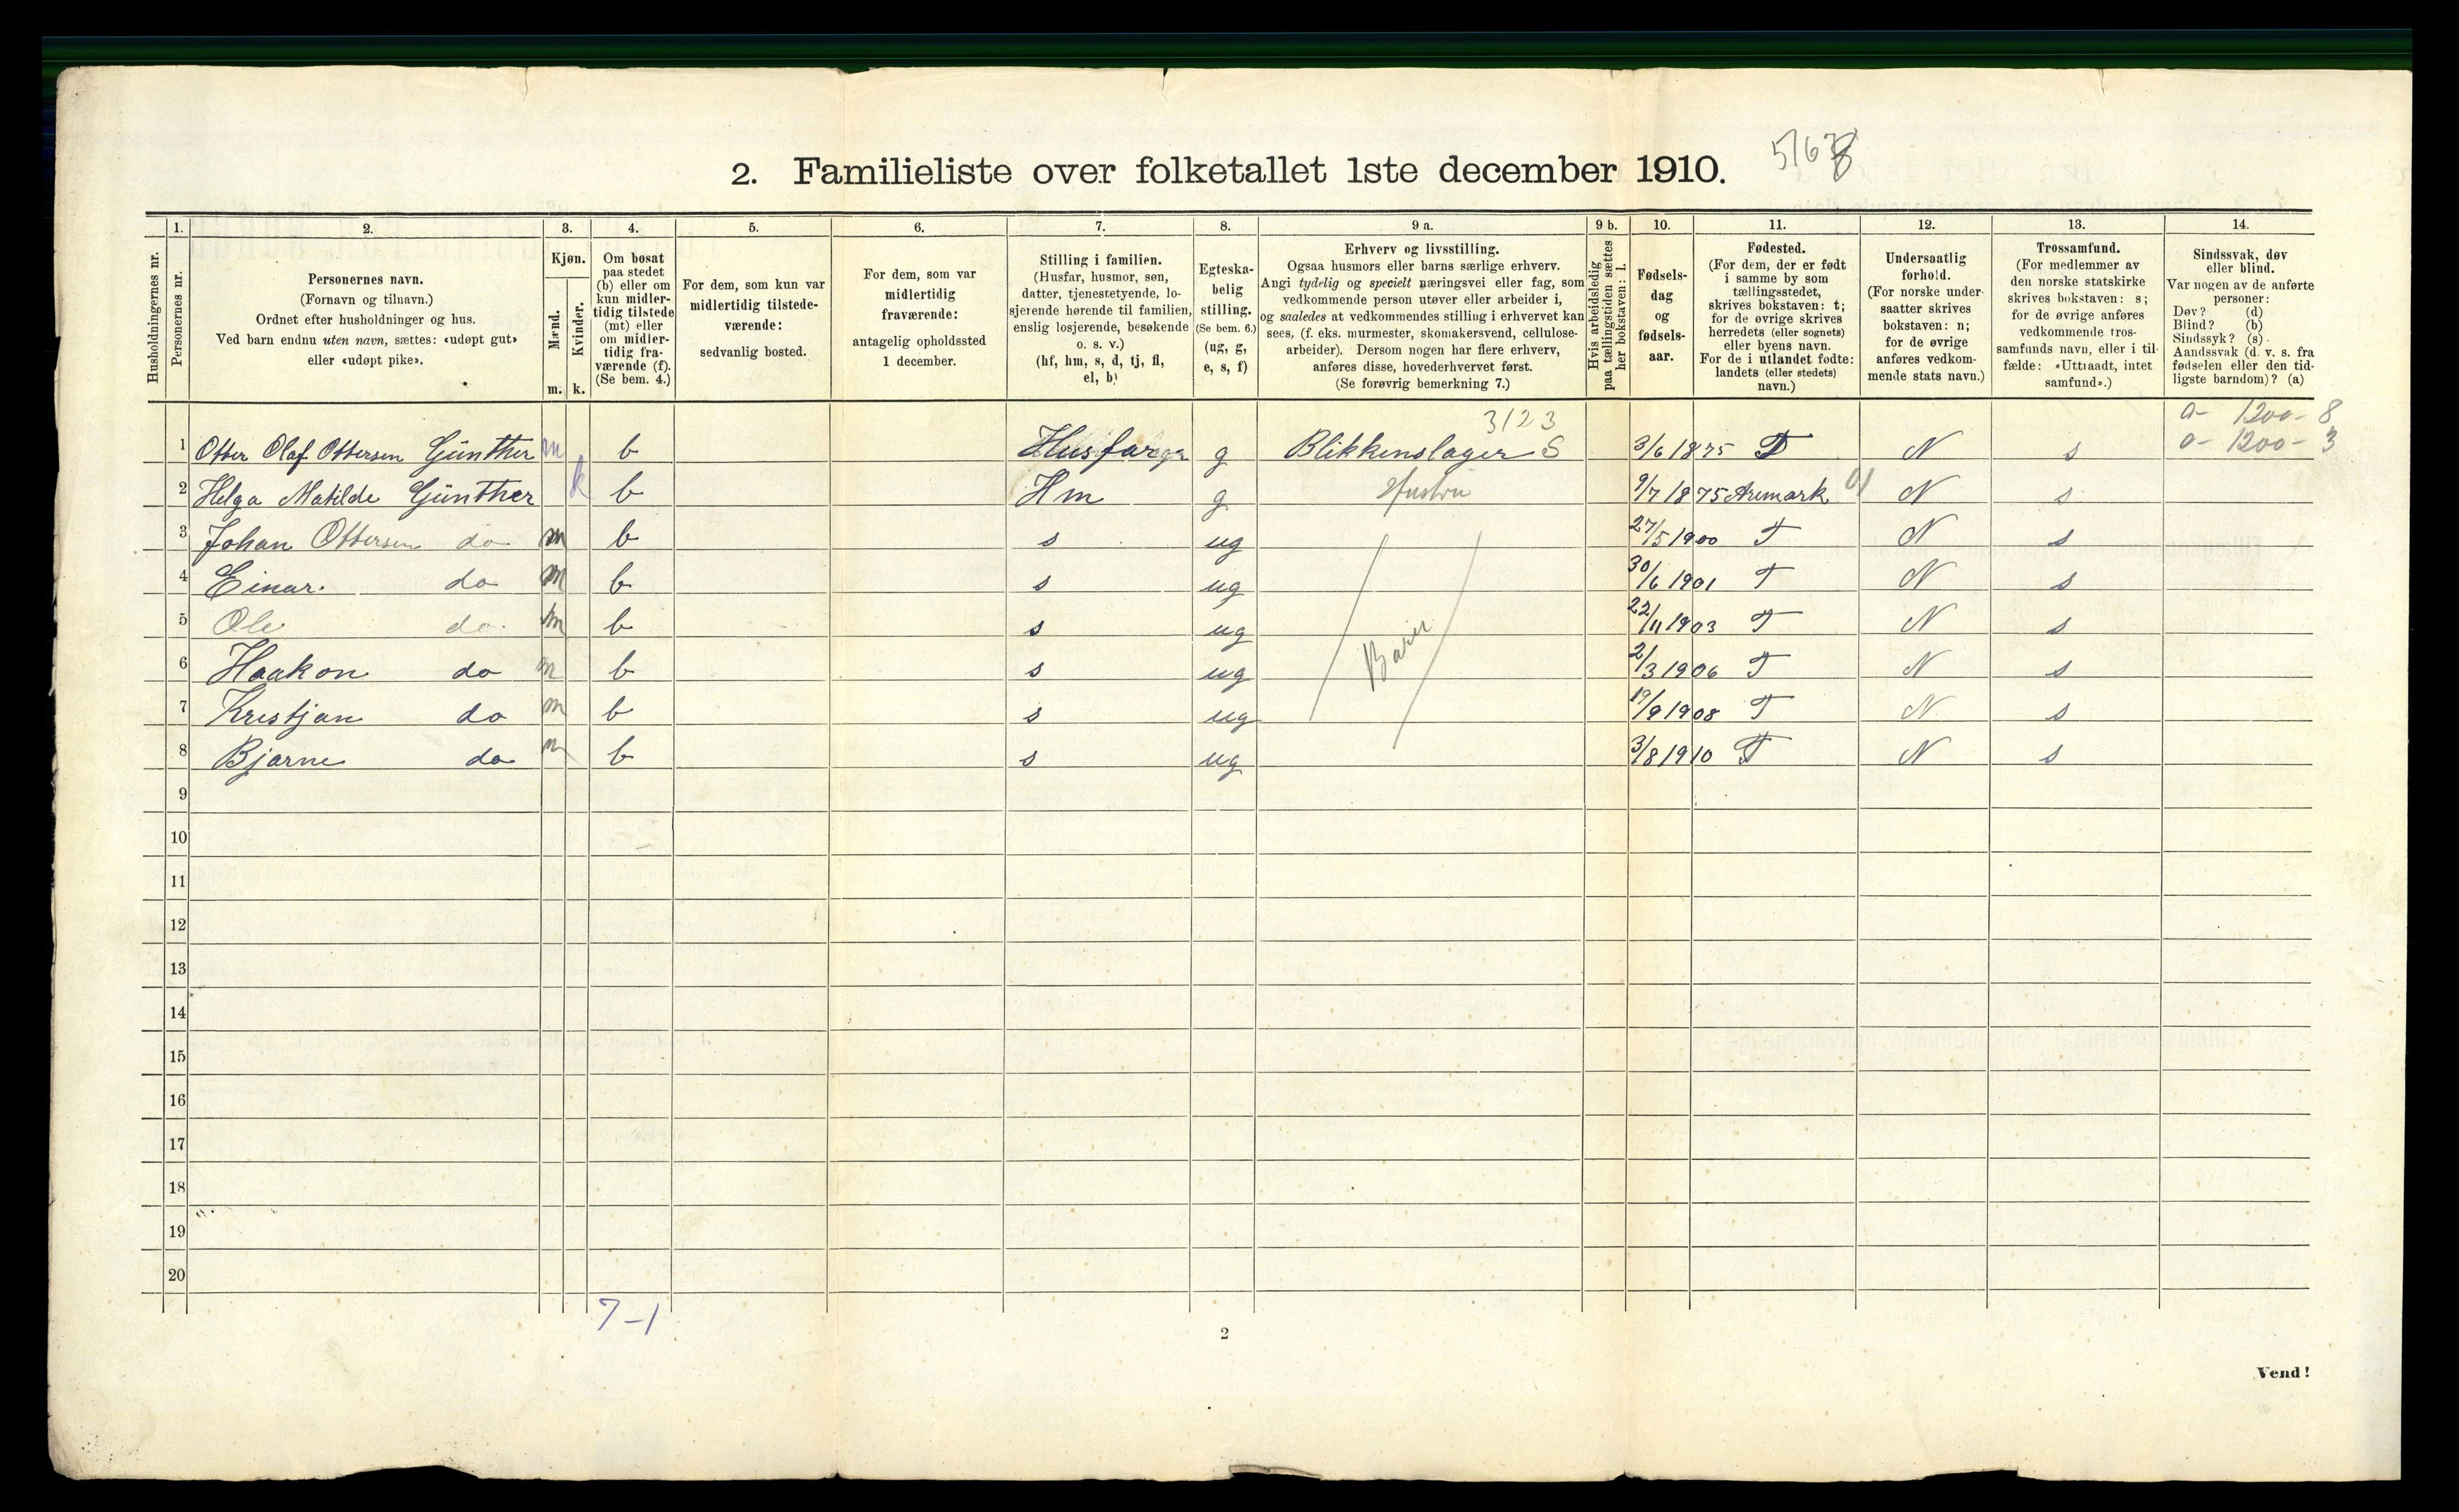 5167 8
2. Familieliste over folketallet 1ste december 1910.
1. 2. 3. 4. 5. 6. 7. 8. 9 a. 9 b. 10. 11. 12. 13. 14.
Husholdningernes nr.
Personernes nr.
Personernes navn.
(Fornavn og tilnavn.)
Ordnet efter husholdninger og hus.
Ved barn endnu uten navn, sættes: «udøpt gut»
eller «udøpt pike».
Kjøn.
Mænd.
Kvinder.
m. k.
Om bosat
paa stedet
(b) eller om
kun midler-
tidig tilstede
(mt) eller
om midler-
tidig fra-
værende (f).
(Se bem. 4.)
For dem, som kun var
midlertidig tilstede-
værende:
sedvanlig bosted.
For dem, som var
midlertidig
fraværende:
antagelig opholdssted
1 december.
Stilling i familien.
(Husfar, husmor, søn,
datter, tjenestetyende, lo-
sjerende hørende til familien,
enslig losjerende, besøkende
o. s. v.)
(hf, hm, s, d, tj, fl,
el, b)
Egteska-
belig
stilling.
(Se bem. 6.)
(ug, g,
e, s, f)
Erhverv og livsstilling.
Ogsaa husmors eller barns særlige erhverv.
Angi tydelig og specielt næringsvei eller fag, som
vedkommende person utøver eller arbeider i,
og saaledes at vedkommendes stilling i erhvervet kan
sees, (f. eks. murmester, skomakersvend, cellulose-
arbeider). Dersom nogen har flere erhverv,
anføres disse, hovederhvervet først.
(Se forøvrig bemerkning 7.)
Hvis arbeidsledig
paa tællingstiden sættes
her bokstaven: l.
Fødsels-
dag
og
fødsels-
aar.
Fødested.
(For dem, der er født
i samme by som
tællingsstedet,
skrives bokstaven: t;
for de øvrige skrives
herredets (eller sognets)
eller byens navn.
For de i utlandet fødte:
landets (eller stedets)
navn.)
Undersaatlig
forhold.
(For norske under-
saatter skrives
bokstaven: n;
for de øvrige
anføres vedkom-
mende stats navn.)
Trossamfund.
(For medlemmer av
den norske statskirke
skrives bokstaven: s;
for de øvrige anføres
vedkommende tros-
samfunds navn, eller i til-
fælde: «Uttraadt, intet
samfund».)
Sindssvak, døv
eller blind.
Var nogen av de anførte
personer:
Døv? (d)
Blind? (b)
Sindssyk? (s)
Aandssvak (d. v. s. fra
fødselen eller den tid-
ligste barndom)? (a)
3123 0- 1200- 8
1 Otter Olaf Ottersen Günther m b Husfar g Blikkenslager S 3/6 1875 T N s 0- 1200- 3
2 Helga Matilde Günther k b Hm g Hustru 9/7 1875 Aremark 01 N s
3 Johan Ottersen do m b s ug 27/5 1900 T N s
4 Einar. do m b s ug 30/6 1901 T N s
5 Ole do. m b s ug Barn 22/11 1903 T N s
6 Haakon do m b s ug 2/3 1906 T N s
7 Kristjan do m b s ug 19/9 1908 T N s
8 Bjarne do m b s ug 3/8 1910 T N s
9
10
11
12
13
14
15
16
17
18
19
20
7-1
2
Vend!